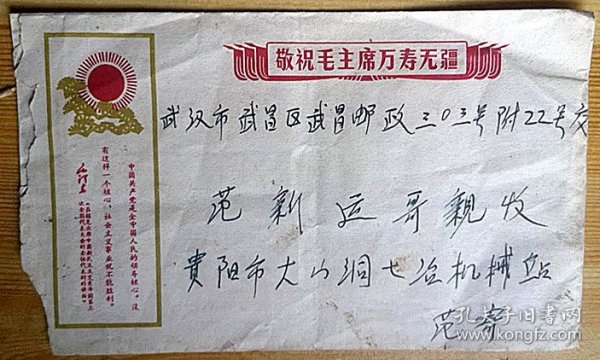 敬祝毛主席万寿无疆
武汉市武昌区武昌邮政三〇三号附22号交
范新运哥親收
貴阳市大山洞七冶机械站
范寄
中国共产党是全中国人民的领导核心。没
有这样一个核心，社会主义事业就不能胜利。
毛泽东
孔夫子旧书网
www.kongfz.com